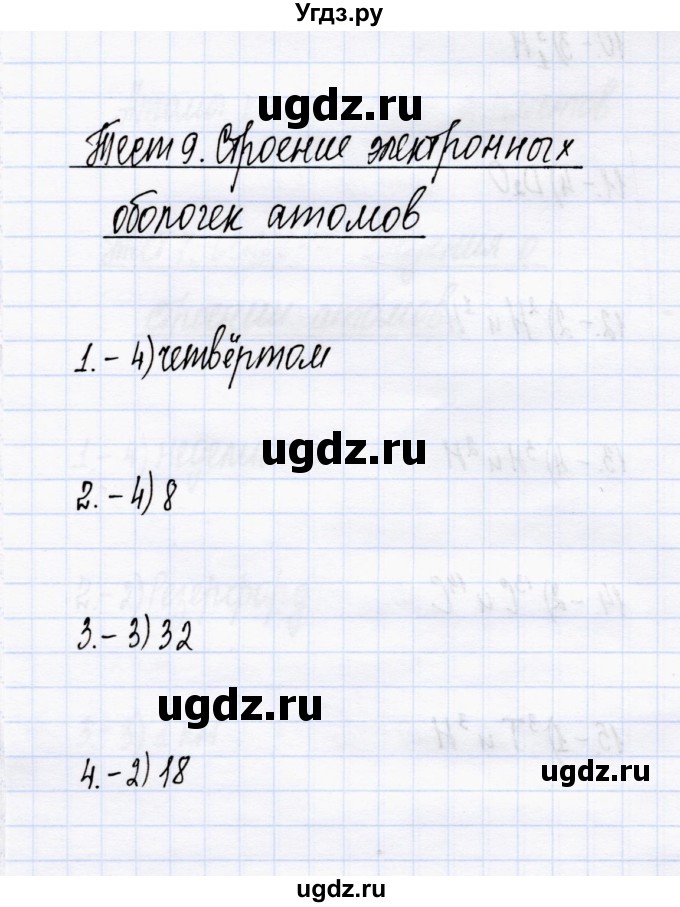 Угдз.ру
ugdz.ru
Тест 9. Строение электронных
оболочек атомов
1. – 4) четвёртом
ugdz.ru
2. – 4) 8
3. – 3) 32
ugdz.ru
ugdz.ru
4. – 2) 18
ugdz.ru